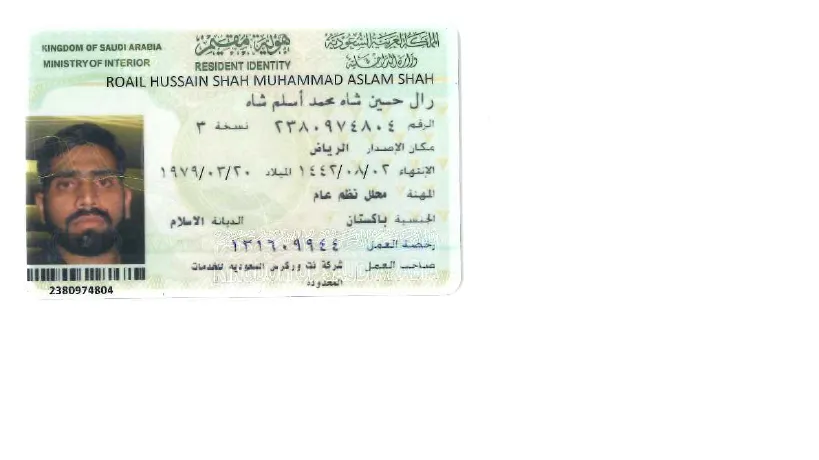 KINGDOM OF SAUDI ARABIA
هوية مقيم
المملكة العربية السعودية
MINISTRY OF INTERIOR
RESIDENT IDENTITY
وزارة الداخلية
ROAIL HUSSAIN SHAH MUHAMMAD ASLAM SHAH
رال حسين شاه محمد أسلم شاه
الرقم ٢٣٨٠٩٧٤٨٠٤ نسخة ٣
مكان الإصدار الرياض
الإنتهاء ١٤٤٢/٠٨/٠٢ الميلاد ١٩٧٩/٠٣/٢٠
المهنة محلل نظم عام
الجنسية باكستان الديانة الاسلام
رخصة العمل ١٣١٦٠٩٩٤٤
صاحب العمل شركة نت ووركرس السعوديه للخدمات
المحدوده
2380974804